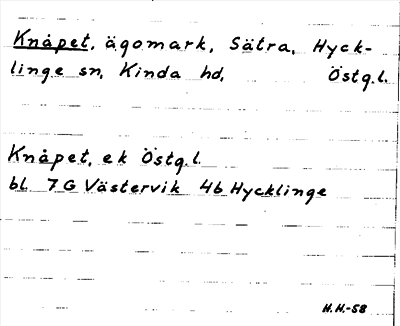 Knåpet, ägomark, Sätra, Hyck-
linge sn, Kinda hd, Östg.l.
Knåpet, ek Östg.l.
bl. 7G Västervik 4b Hycklinge
H.H.-58